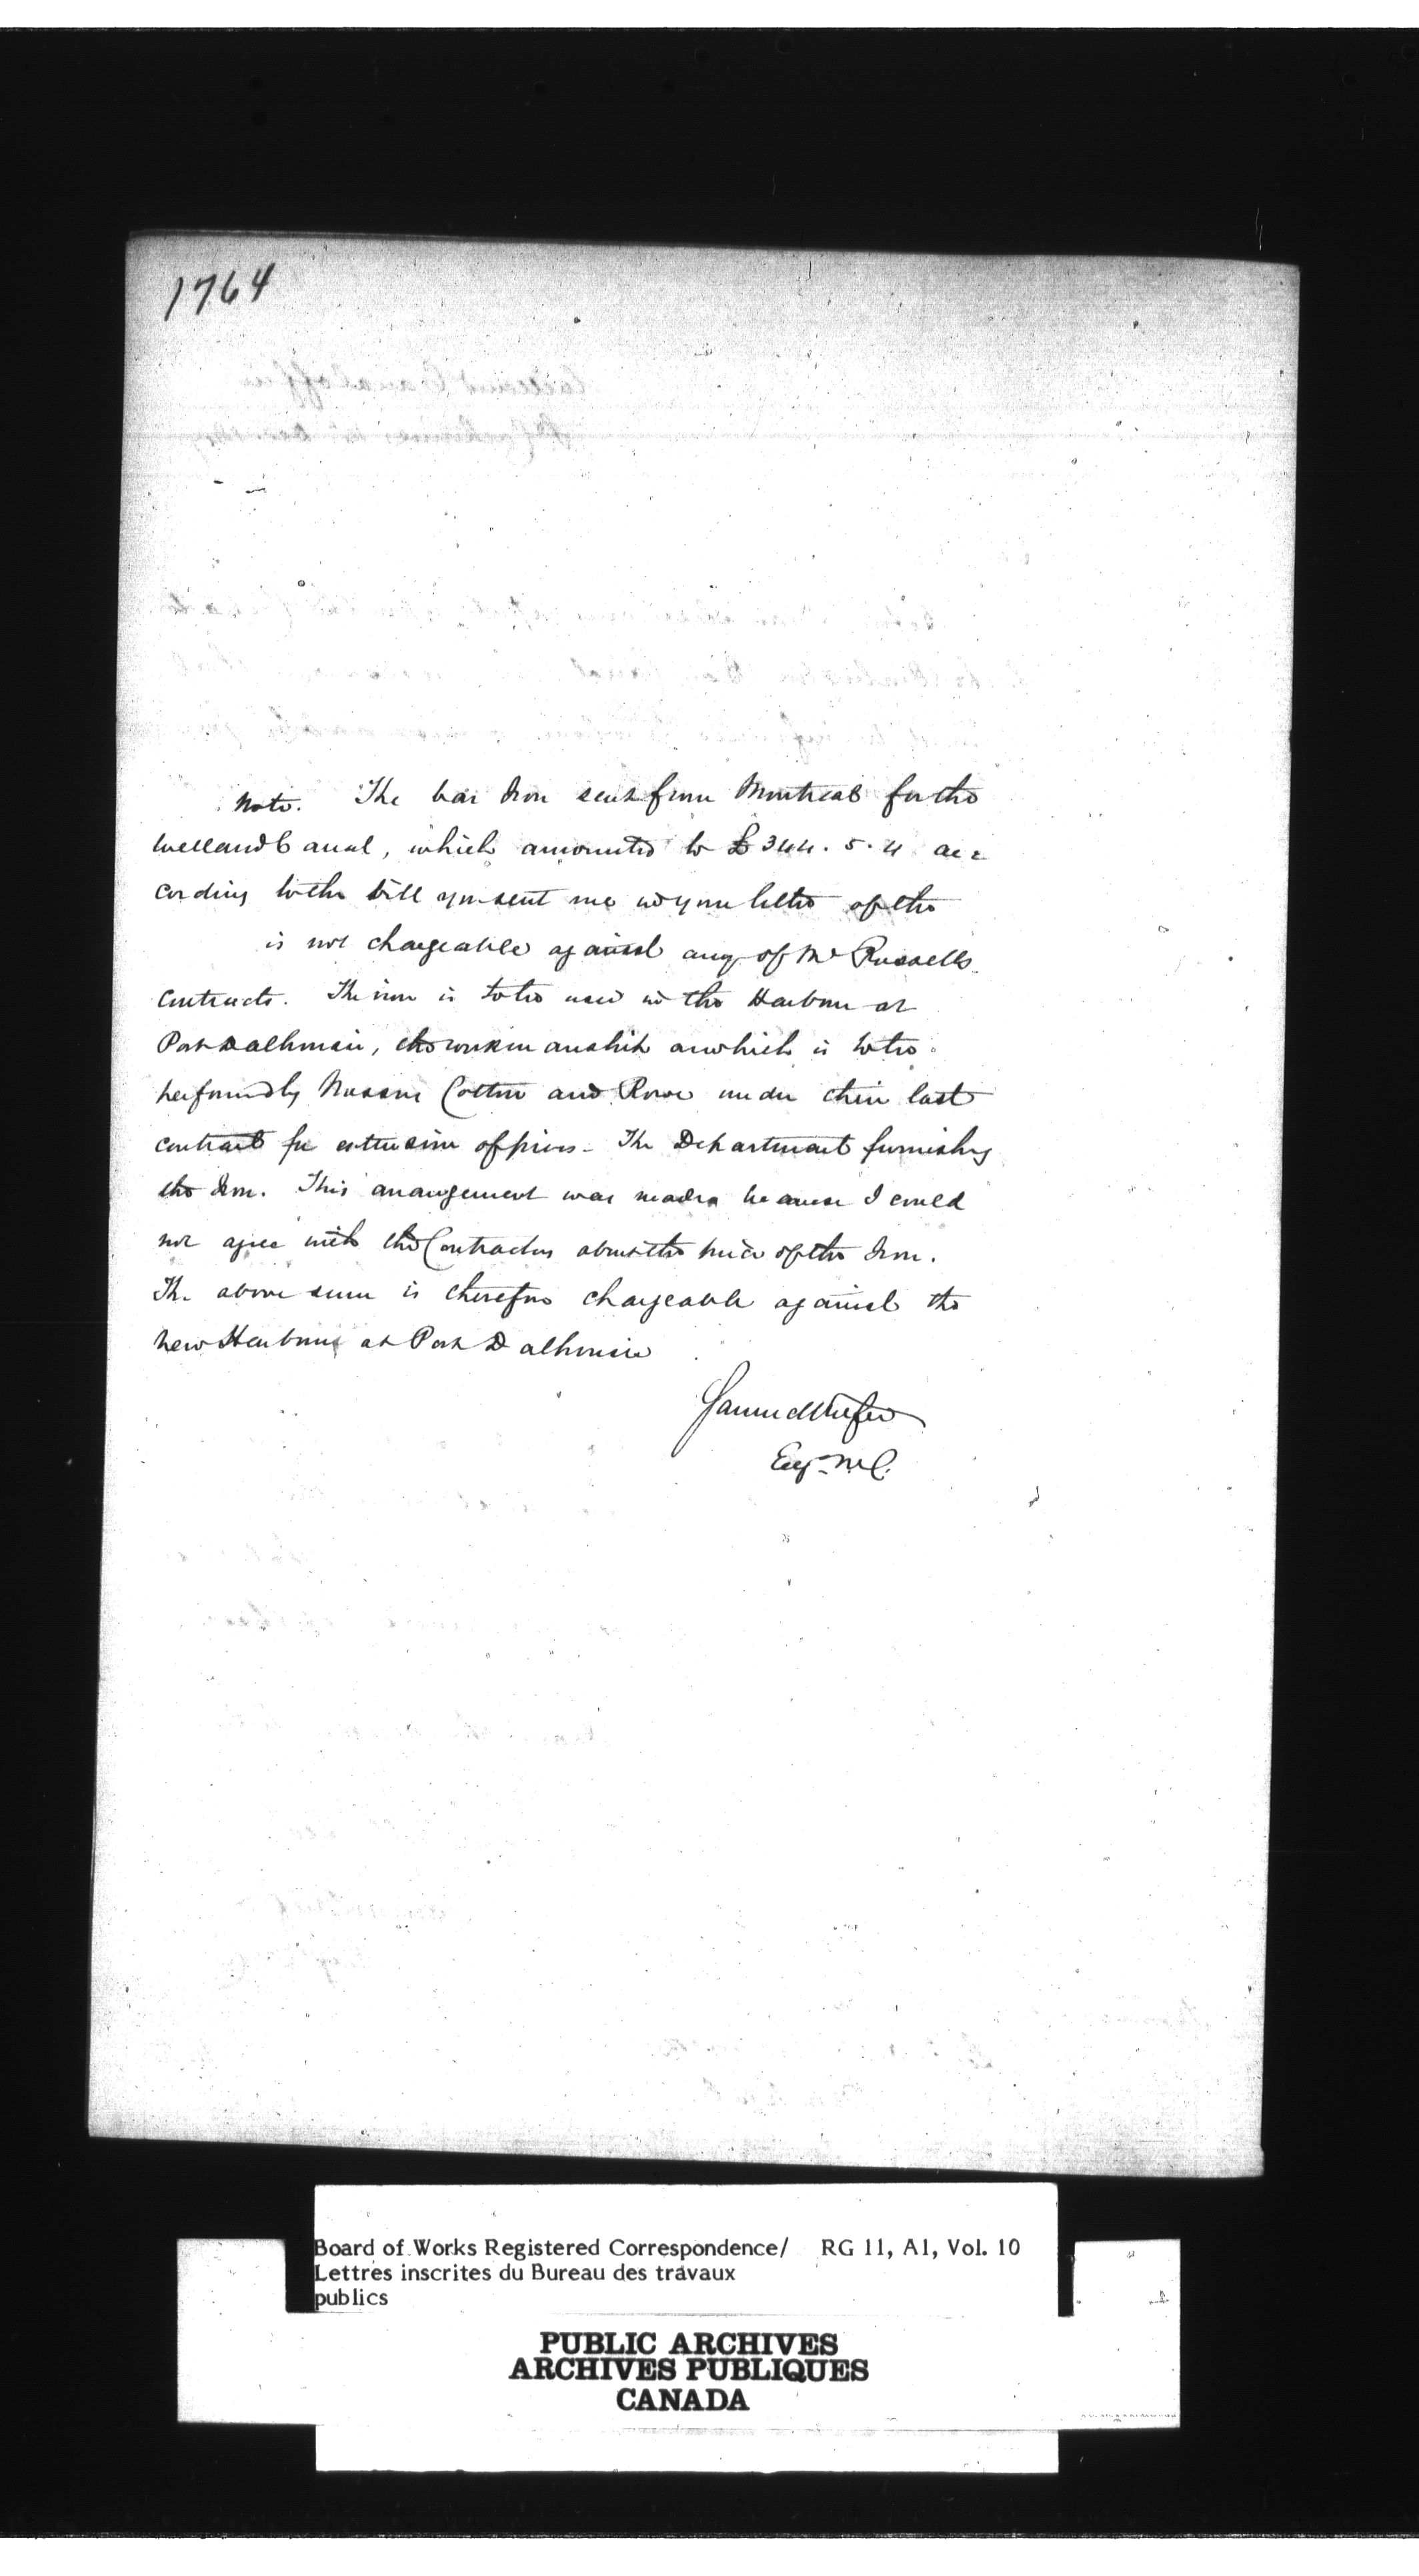 1764
Note. The bar Iron sent from Montreal for the
Welland Canal, which amounted to £344.5.4 ac=
cording to the bill you sent me in your letter of the
is not chargeable against any of Mr Russells
contracts. The iron is to be used in the Harbour at
Port Dalhousie, the workmanship on which is to be
performed by Messrs Cotton and Rowe under their last
contract for extension of piers - The Department furnishing
the Iron. This arrangement was made because I could
not agree with the Contractors about the price of the Iron.
The above sum is therefore chargeable against the
new Harbour at Port Dalhousie
Samuel Keefer
Engr. W.C.
Board of Works Registered Correspondence/ RG 11, A1, Vol. 10
Lettres inscrites du Bureau des travaux
publics
PUBLIC ARCHIVES
ARCHIVES PUBLIQUES
CANADA